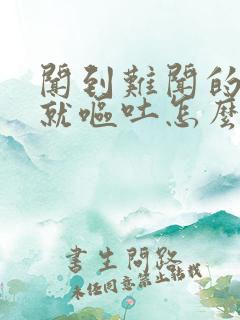 聞到難聞的
就嘔吐怎麼
書生問路
未經同意禁止轉載